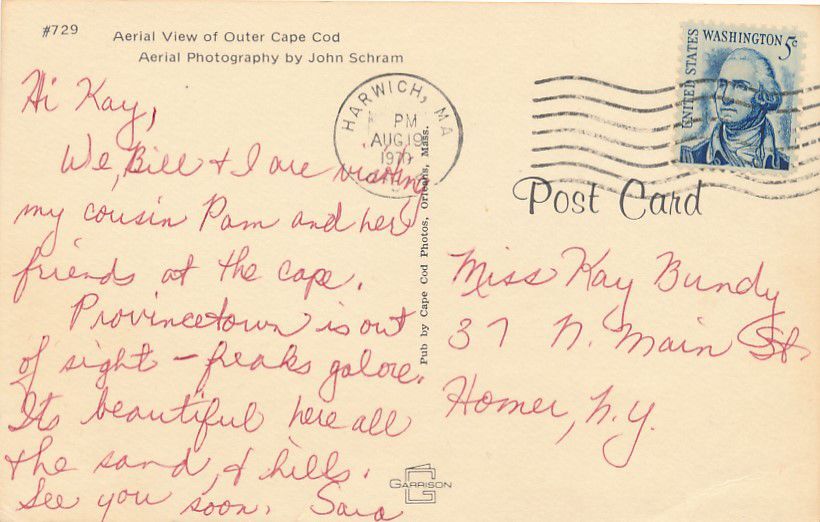 #729
Aerial View of Outer Cape Cod
Aerial Photography by John Schram
HARWICH, MA
PM
AUG 19
1970
UNITED STATES
WASHINGTON 5c
Post Card
Hi Kay,
We, Bill & I are visiting
my cousin Pam and her
friends at the cape.
Provincetown is out
of sight – freaks galore.
Its beautiful here all
the sand, & hills.
See you soon. Sara
Pub by Cape Cod Photos, Orleans, Mass.
Miss Kay Bundy
37 N. Main St.
Homer, N.Y.
GARRISON